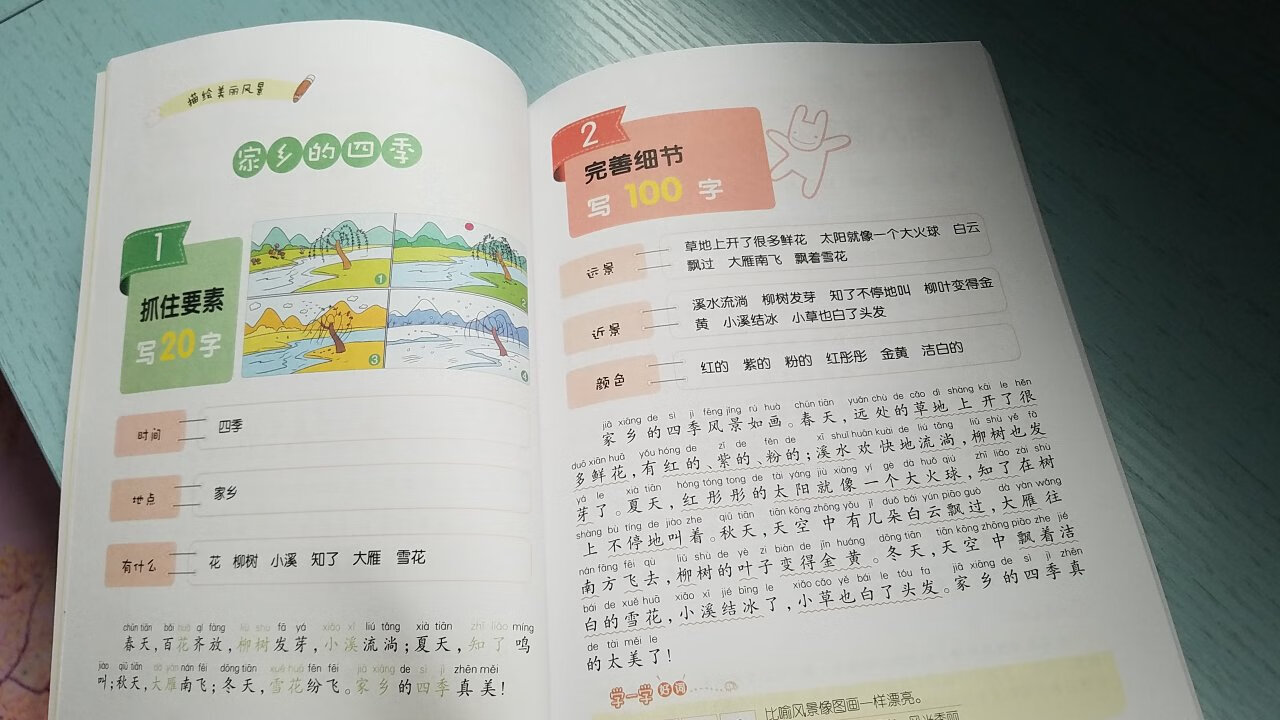 描绘美丽风景
家乡的四季
1
抓住要素
写20字
1
2
3
4
时间
四季
地点
家乡
有什么
花 柳树 小溪 知了 大雁 雪花
chūn tiān bǎi huā qí fàng liǔ shù fā yá xiǎo xī liú tǎng xià tiān zhī liǎo míng
春天,百花齐放,柳树发芽,小溪流淌;夏天,知了鸣
jiào qiū tiān dà yàn nán fēi dōng tiān xuě huā fēn fēi jiā xiāng de sì jì zhēn měi
叫;秋天,大雁南飞;冬天,雪花纷飞。家乡的四季真美!
2
完善细节
写100字
远景
草地上开了很多鲜花 太阳就像一个大火球 白云
飘过 大雁南飞 飘着雪花
近景
溪水流淌 柳树发芽 知了不停地叫 柳叶变得金
黄 小溪结冰 小草也白了头发
颜色
红的 紫的 粉的 红彤彤 金黄 洁白的
jiā xiāng de sì jì fēng jǐng rú huà chūn tiān yuǎn chù de cǎo dì shàng kāi le hěn
家乡的四季风景如画。春天,远处的草地上开了很
duō xiān huā yǒu hóng de zǐ de fěn de xī shuǐ huān kuài de liú tǎng liǔ shù yě fā
多鲜花,有红的、紫的、粉的;溪水欢快地流淌,柳树也发
yá le xià tiān hóng tóng tóng de tài yáng jiù xiàng yí gè dà huǒ qiú zhī liǎo zài shù
芽了。夏天,红彤彤的太阳就像一个大火球,知了在树
shàng bù tíng de jiào zhe qiū tiān tiān kōng zhōng yǒu jǐ duǒ bái yún piāo guò dà yàn wǎng
上不停地叫着。秋天,天空中有几朵白云飘过,大雁往
nán fāng fēi qù liǔ shù de yè zi biàn de jīn huáng dōng tiān tiān kōng zhōng piāo zhe jié
南方飞去,柳树的叶子变得金黄。冬天,天空中飘着洁
bái de xuě huā xiǎo xī jié bīng le xiǎo cǎo yě bái le tóu fa jiā xiāng de sì jì zhēn
白的雪花,小溪结冰了,小草也白了头发。家乡的四季真
de tài měi le
的太美了!
学一学 好词
比喻风景像图画一样漂亮。